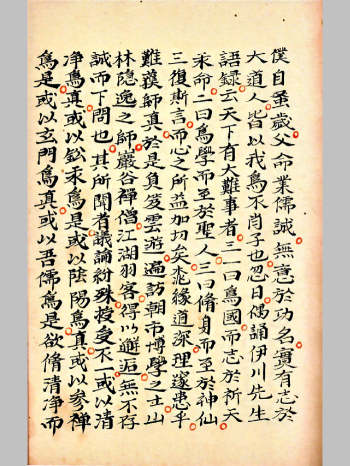 僕自蚤歲父命業儒誠無意於功名實有志於
大道人皆以我爲不肖子也忽日偶誦伊川先生
語録云天下有大難事者三一曰爲國而志於祈天
永命二曰爲學而至於聖人三曰脩身而至於神仙
三復斯言而心之所益加切矣柰緣道深理邃患乎
難獲師真於是負笈雲遊遍訪朝市博學之士山
林隠逸之師巖谷禪僧江湖羽客得以邂逅無不存
誠而下問也其所聞者議論紛殊授受不一或以清
净爲真或以鈆汞爲是或以陰陽爲真或以參禪
爲是或以玄門爲真或以吾儒爲是欲脩清净而